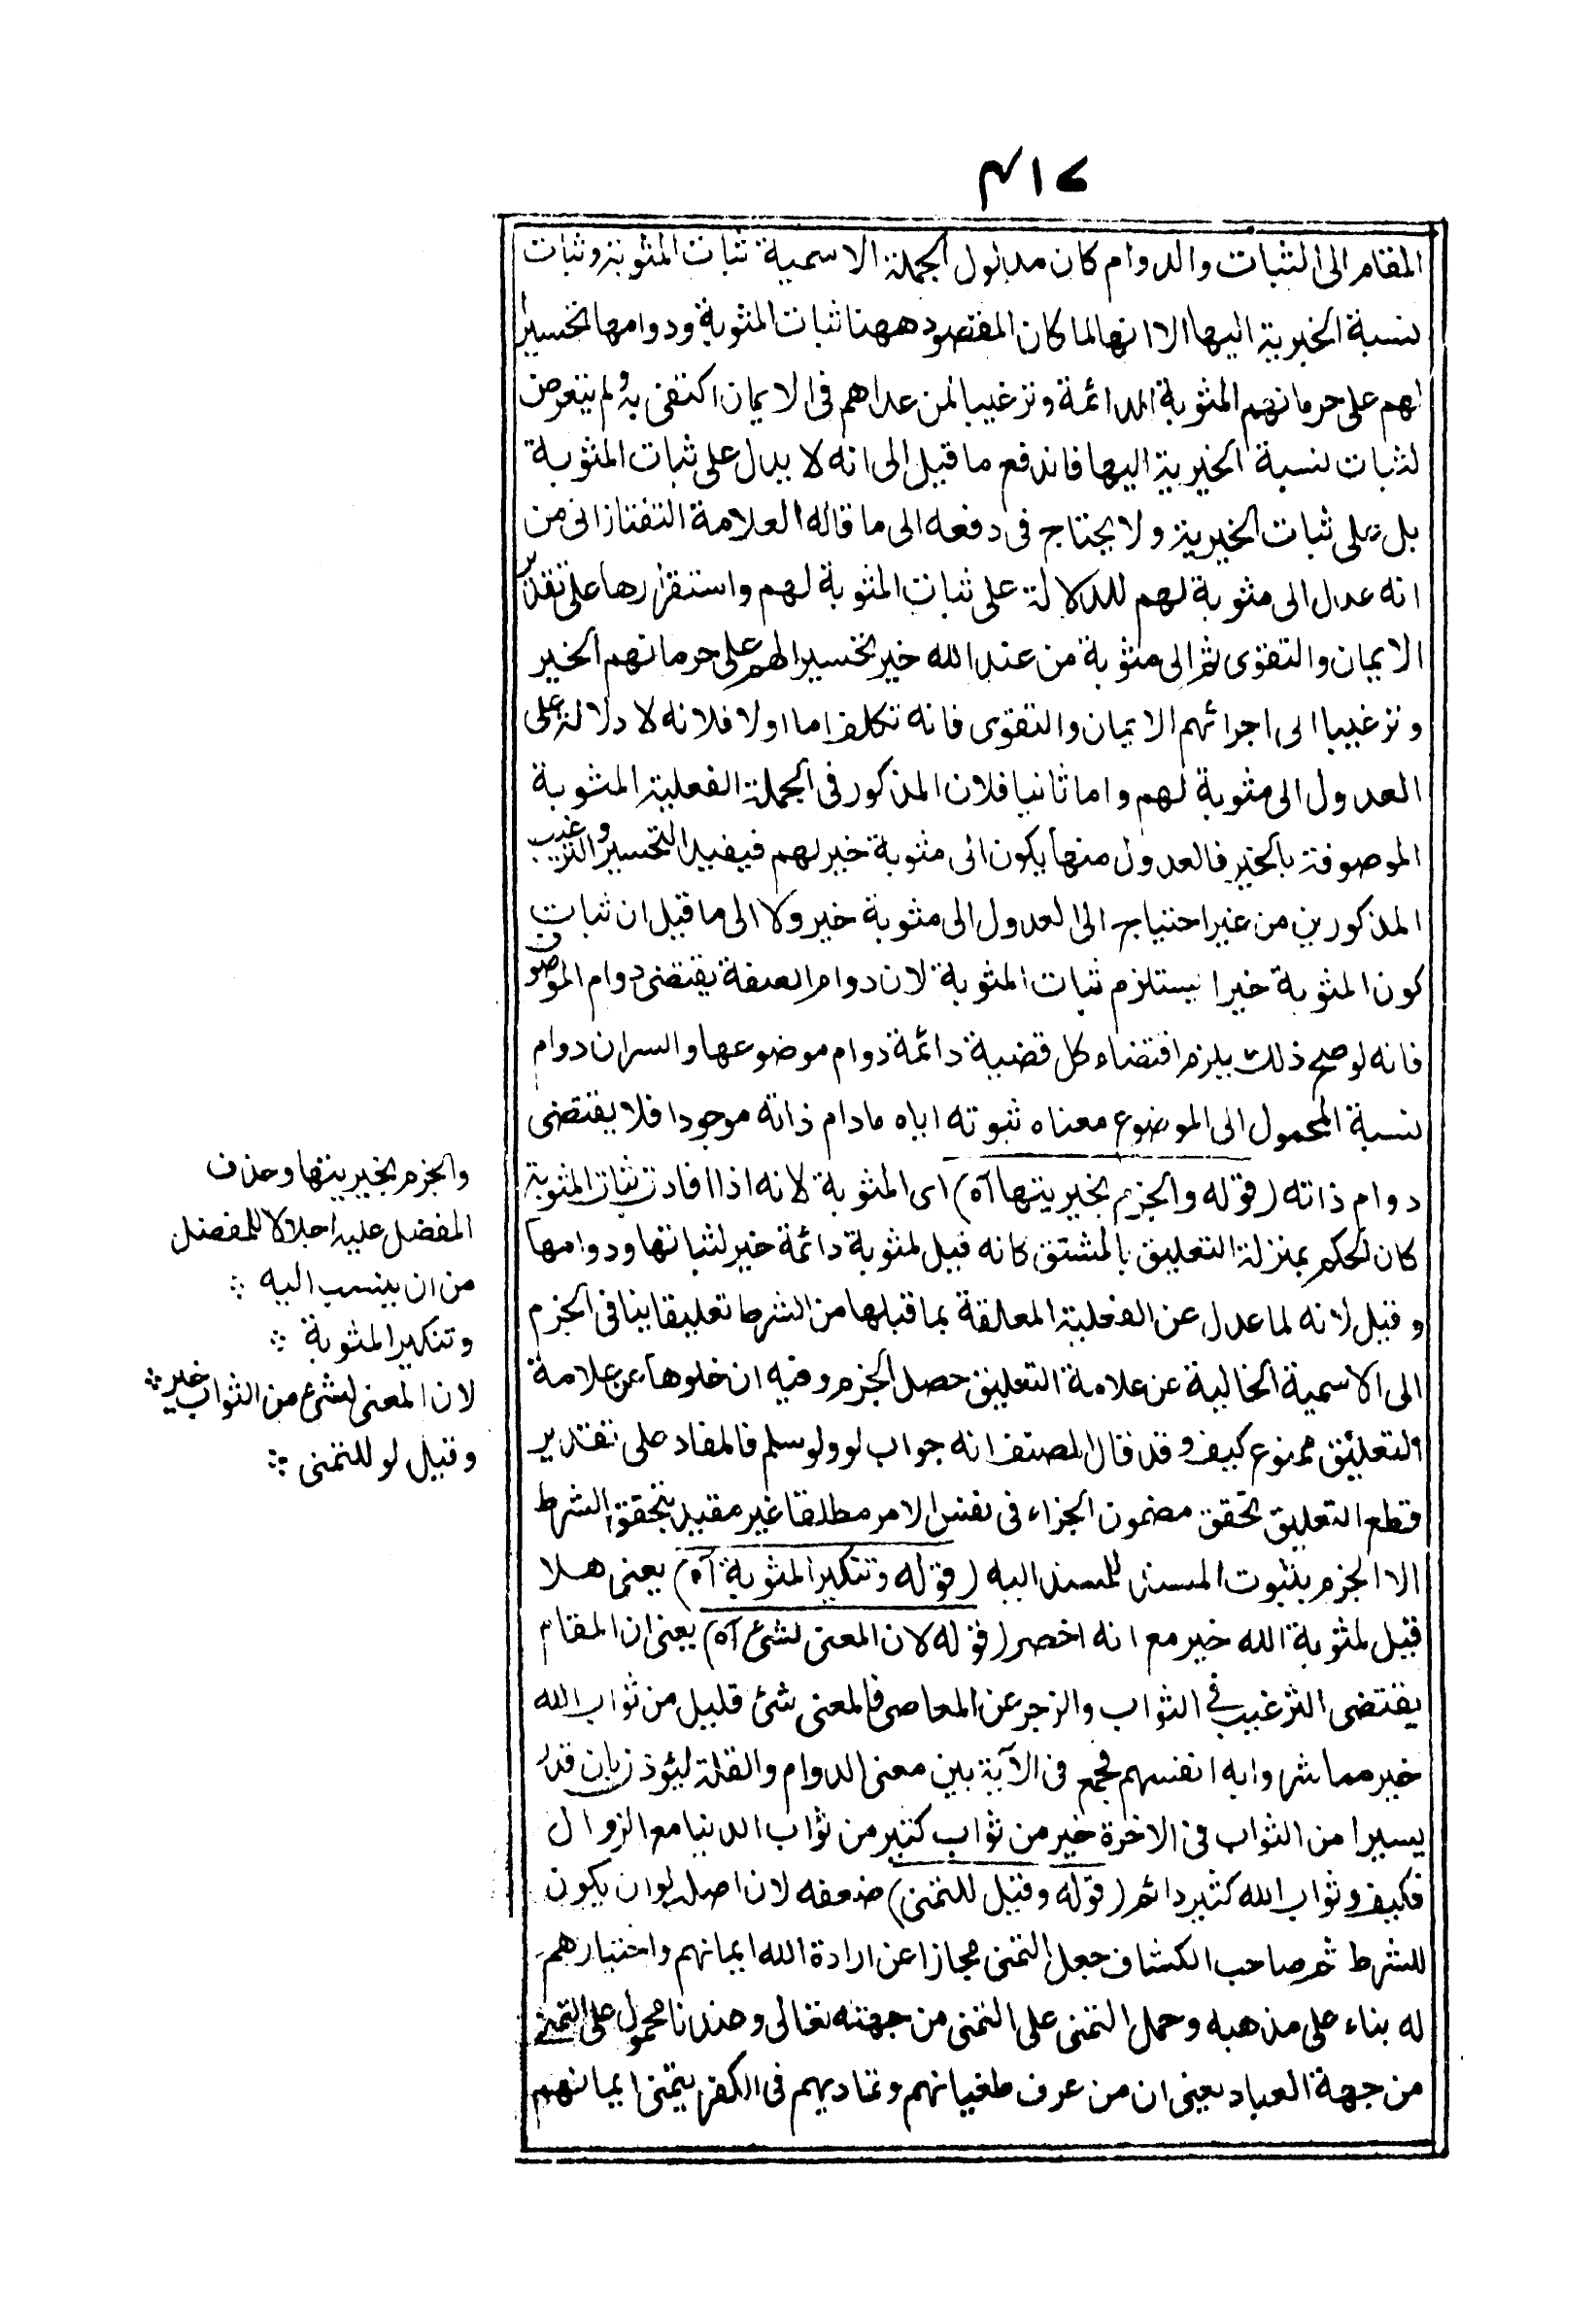 ٤١٧
المقام الى الثبات والدوام كان مدلول الجملة الاسمية ثبات المثوبة وثبات
نسبة الخيرية اليها الا انها لما كان المقصود ههنا ثبات المثوبة ودوامها تخسيرا
لهم على حرمانهم المثوبة الدائمة وترغيبا لمن عداهم فى الايمان اكتفى به ولم يتعرض
لثبات نسبة الخيرية اليها فاندفع ما قيل الى انه لا يدل على ثبات المثوبة
بل على ثبات الخيرية ولا يحتاج فى دفعه الى ما قاله العلامة التفتازانى من
انه عدل الى مثوبة لهم للدلالة على ثبات المثوبة لهم واستقرارها على تقدير
الايمان والتقوى ثم الى مثوبة من عند الله خير تخسيرا لهم على حرمانهم الخير
وترغيبا الى اجرائهم الايمان والتقوى فانه تكلف اما اولا فلانه لا دلالة على
العدول الى مثوبة لهم واما ثانيا فلان المذكور فى الجملة الفعلية المثوبة
الموصوفة بالخير فالعدول منها يكون الى مثوبة خير لهم فيفيد التخسير والترغيب
المذكورين من غير احتياج الى العدول الى مثوبة خير ولا الى ما قيل ان ثبات
كون المثوبة خيرا يستلزم ثبات المثوبة لان دوام الصفة يقتضى دوام الموصوف
فانه لو صح ذلك يلزم اقتضاء كل قضية دائمة دوام موضوعها والسر ان دوام
نسبة المحمول الى الموضوع معناه ثبوته اياه مادام ذاته موجودا فلا يقتضى
دوام ذاته (قوله والجزم بخيريتها آه) اى المثوبة لانه اذا افادت ثبات المثوبة
كان الحكم بمنزلة التعليق بالمشتق كانه قيل لمثوبة دائمة خير لثباتها ودوامها
وقيل لانه لما عدل عن الفعلية المعالقة بما قبلها من الشرط تعليقا ينافى الجزم
الى الاسمية الخالية عن علامة التعليق حصل الجزم وفيه ان خلوها عن علامة
التعليق ممنوع كيف وقد قال المصنف انه جواب لو ولو سلم فالمفاد على تقدير
قطع التعليق تحقق مضمون الجزاء فى نفس الامر مطلقا غير مقيد بتحقق الشرط
الا الجزم بثبوت المسند للمسند اليه (قوله وتنكير المثوبة آه) يعنى هلا
قيل لمثوبة الله خير مع انه اخصر (قوله لان المعنى لشئ آه) يعنى ان المقام
يقتضى الترغيب فى الثواب والزجر عن المعاصى فالمعنى شئ قليل من ثواب الله
خير مما شروا به انفسهم فجمع فى الآية بين معنى الدوام والقلة ليؤذن بان قدرا
يسيرا من الثواب فى الاخرة خير من ثواب كثير من ثواب الدنيا مع الزوال
فكيف وثواب الله كثير دائم (قوله وقيل للتمنى) ضعفه لان اصل لو ان يكون
للشرط ثم صاحب الكشاف جعل التمنى مجازا عن ارادة الله ايمانهم واختيارهم
له بناء على مذهبه وحمل التمنى على التمنى من جهته تعالى وعندنا محمول على التمنى
من جهة العباد يعنى ان من عرف طغيانهم وتماديهم فى الكفر يتمنى ايمانهم
والجزم بخيريتها وحذف
المفضل عليه اجلالا للمفضل
من ان ينسب اليه ⁘
وتنكير المثوبة ⁘
لان المعنى لشئ من الثواب خير ⁘
وقيل لو للتمنى ⁘